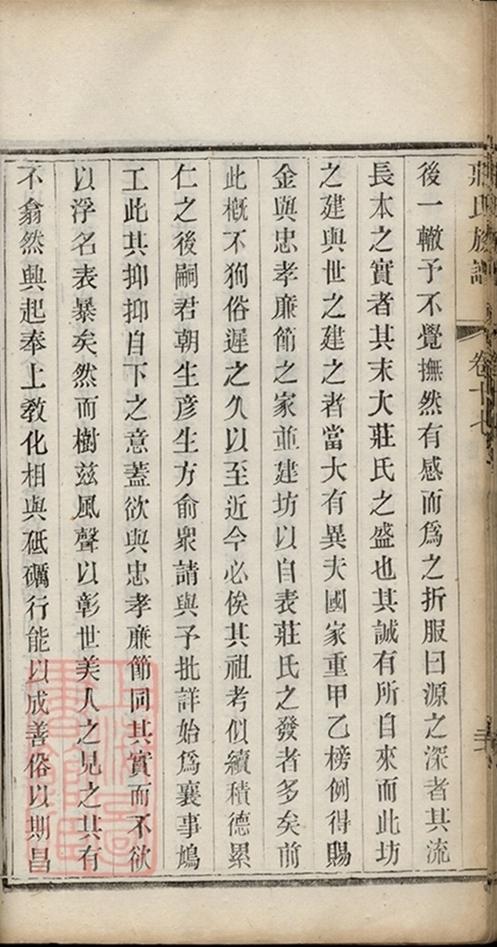 莊氏族譜 卷十七
後一轍予不覺撫然有感而爲之折服曰源之深者其流
長本之實者其末大莊氏之盛也其誠有所自來而此坊
之建與世之建之者當大有異夫國家重甲乙榜例得賜
金與忠孝廉節之家並建坊以自表莊氏之發者多矣前
此概不狥俗遲之久以至近今必俟其祖考似續積德累
仁之後嗣君朝生彦生方俞衆請與予批詳始爲襄事鳩
工此其抑抑自下之意蓋欲與忠孝廉節同其實而不欲
以浮名表暴矣然而樹兹風聲以彰世美人之見之其有
不翕然興起奉上敎化相與砥礪行能以成善俗以期昌